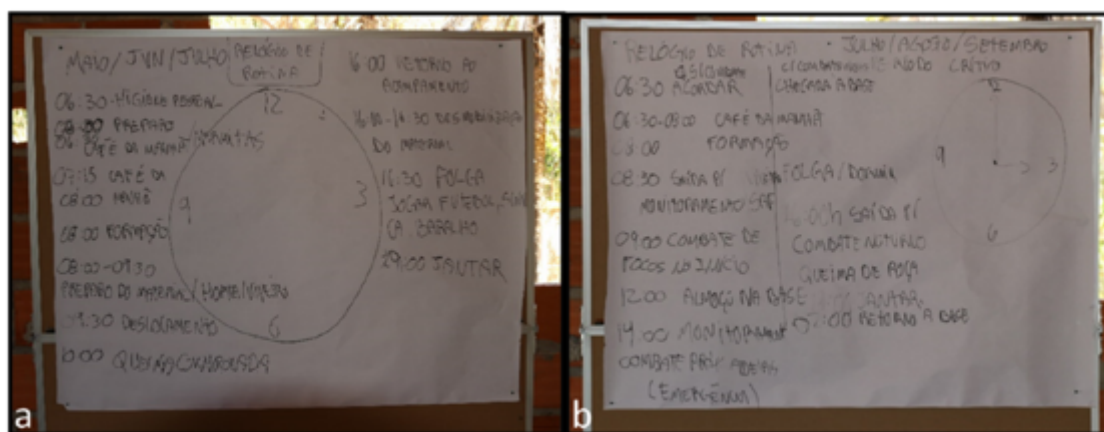 MAIO/JUN/JULHO
RELÓGIO DE
ROTINA
06:30-HIGIENE PESSOAL
PREPARO
CAFÉ DA MANHÃ/MARMITAS
07:15 CAFÉ DA
08:00 MANHÃ
08:00 FORMAÇÃO
08:00-09:30
PREPARO DO MATERIAL/
09:30 DESLOCAMENTO
10:00 QUEIMA
12
3
6
9
16:00 RETORNO AO
ACAMPAMENTO
DO MATERIAL
16:30 FOLGA
JOGAR FUTEBOL,
JANTAR
a
RELÓGIO DE ROTINA
• JULHO/AGOSTO/SETEMBRO
PERÍODO CRÍTICO
06:30 ACORDAR
06:30-08:00 CAFÉ DA MANHÃ
08:00 FORMAÇÃO
08:30 SAÍDA P/
MONITORAMENTO
09:00 COMBATE DE
FOCOS NO INÍCIO
12:00 ALMOÇO NA BASE
14:00 MONITORAMENTO
COMBATE
(EMERGÊNCIA)
CHEGADA A BASE
FOLGA/DORMIR
SAÍDA P/
COMBATE NOTURNO
QUEIMA DE ROÇA
JANTAR
RETORNO A BASE
12
9
3
6
b